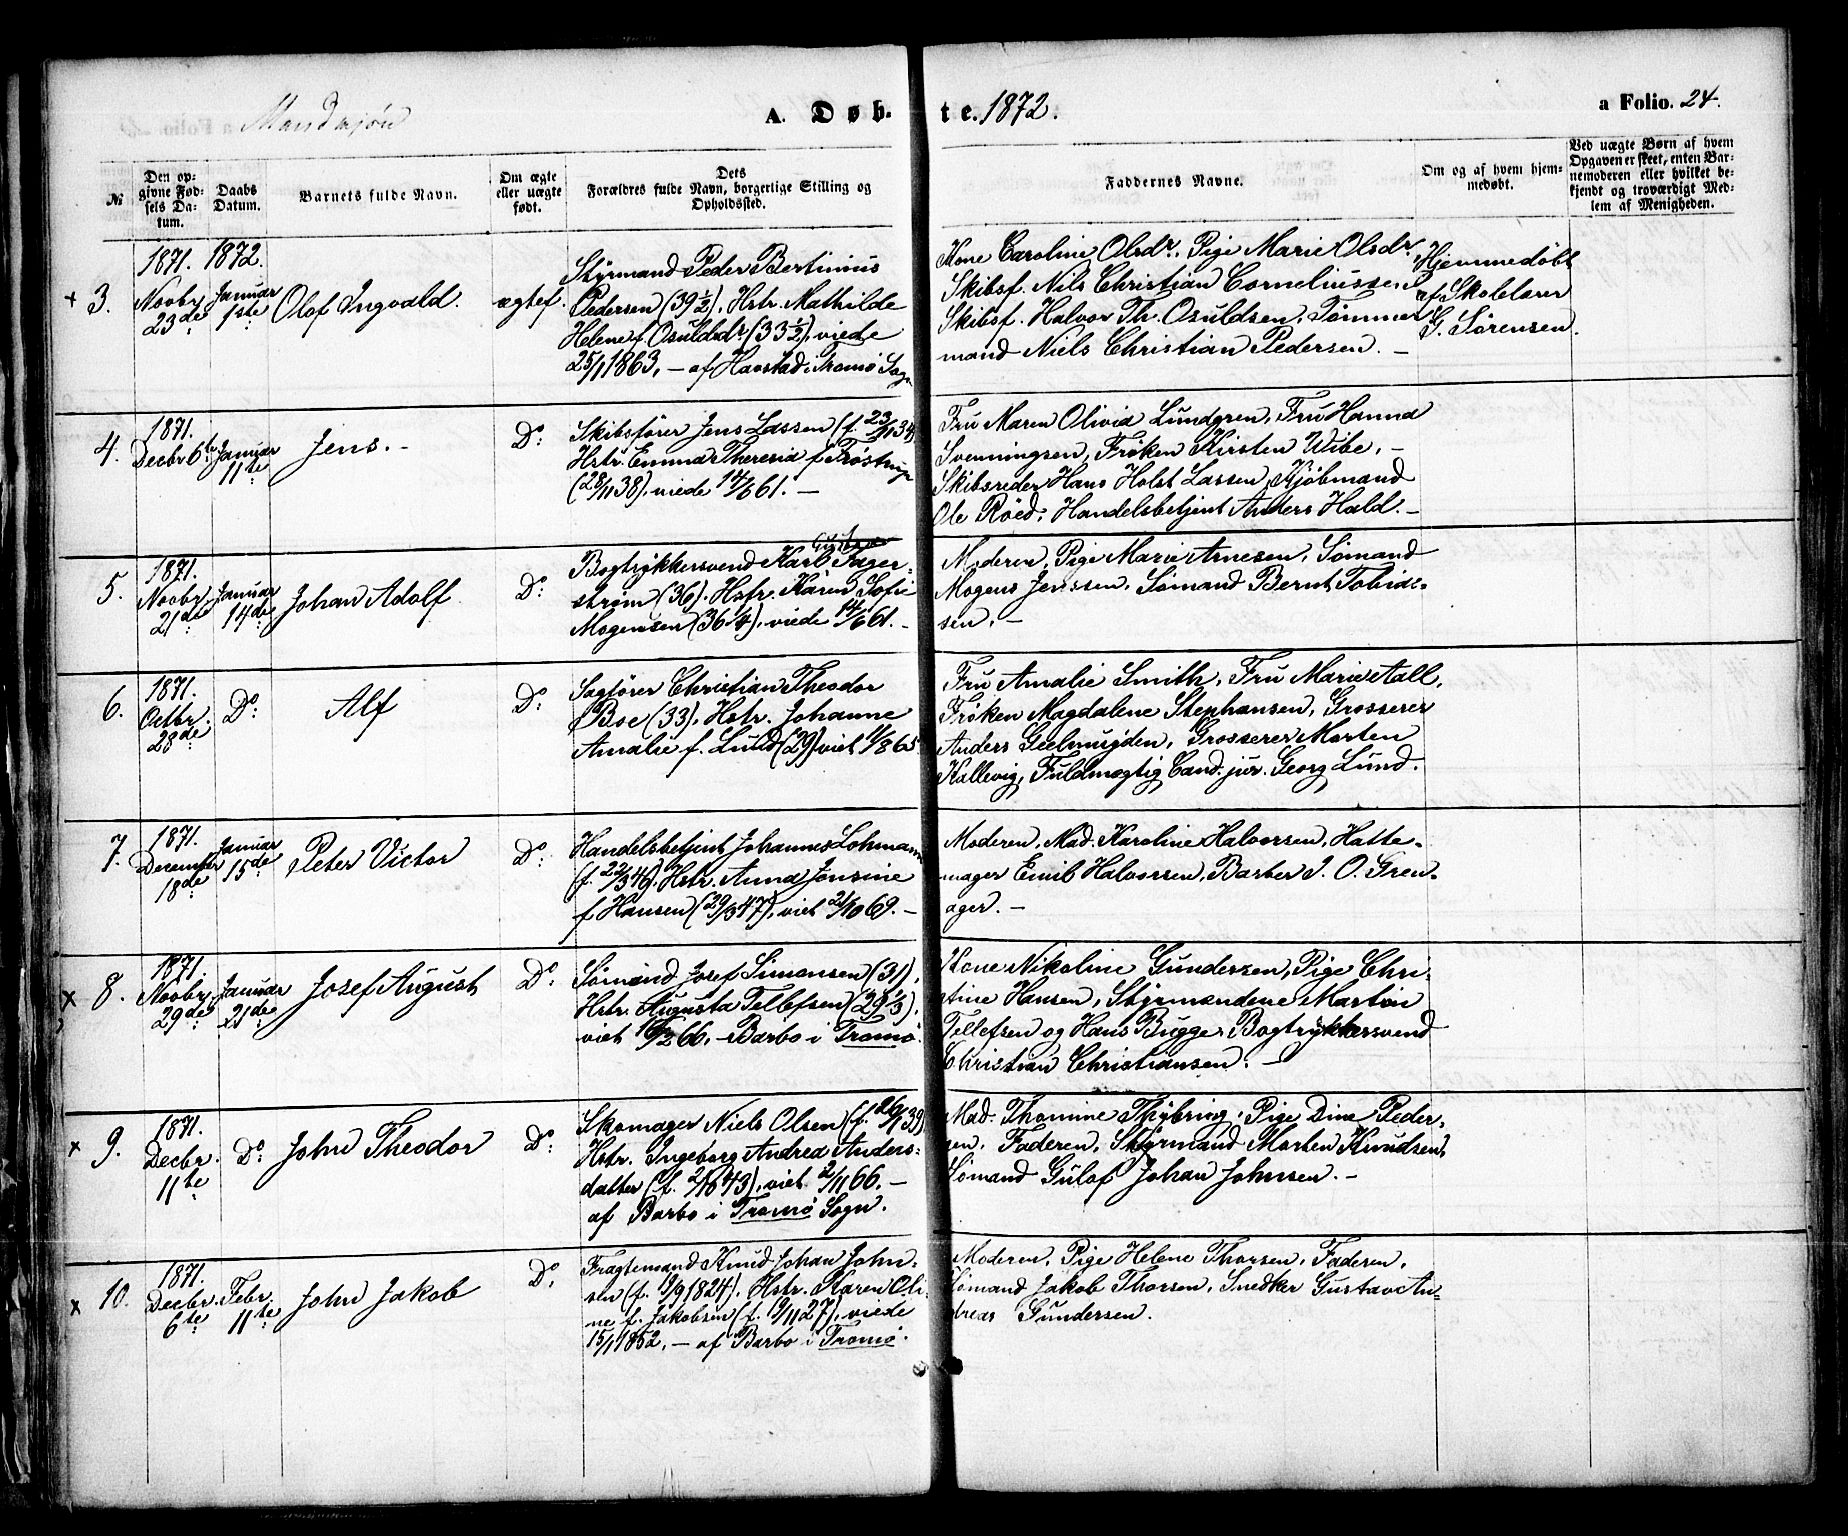 Mandkjøn
A. Døbte. 1872.
a Folio. 24.
№
Den op-
givne Fød-
sels Da-
tum.
Daabs
Datum.
Barnets fulde Navn.
Om ægte
eller uægte
født.
Dets
Forældres fulde Navn, borgerlige Stilling og
Opholdssted.
Faddernes Navne.
Om og af hvem hjem-
medøbt.
Ved uægte Børn af hvem
Opgaven er skeet, enten Bar-
nemoderen eller hvilket be-
kjendt og troværdigt Med-
lem af Menigheden.
x 3.
1871.
Novbr.
23de
1872.
Januar
1ste
Olaf Ingvald.
ægtef.
Styrmand Peder Bertinius
Pedersen (39 1/2). Hstr. Mathilde
Helene f. Osuldsdr (33 1/2), viede
25/1 1863, — af Havstad i Tromø Sogn
Kone Caroline Olsdr. Pige Marie Olsdr.
Skibsf. Nils Christian Corneliussen,
Skibsf. Halvor Th. Osuldsen, Tømmer
mand Niels Christian Pedersen. —
Hjemmedøbt
af Skolelærer
G. Sørensen.
4.
1871.
Decbr 6te
Januar
11te
Jens. -
Do:
Skibsfører Jens Lassen (f. 23/9 34)
Hstr. Emma Theresia f. Trøstrup
(28/11 38), viede 14/6 61. —
Fru Maren Olivia Lundgren, Fru Hanna
Svenningsen, Frøken Kirsten Wibe, -
Skibsreder Hans Holst Lassen, Kjøbmand
Ole Röed, Handelsbetjent Anders Hald. -
5.
1871.
Novbr.
21de
Januar
14de
Johan Adolf
Do:
Bogtrykkersvend Karl Fager-
strøm (36). Hstr. Karen Sofie
Mogensen (36 1/4), viede 14/6 61. -
Moderen, Pige Marie Arnesen, Sømand
Mogens Jenssen, Sømand Bernt Tobias-
sen. -
6.
1871.
Octbr.
28de
Do:
Alf
Do:
Sagfører Christian Theodor
Boe (33), Hstr. Johanne
Amalie f. Lund (29) viet 11/8 65
Fru Amalie Smith, Fru Marie Aall,
Frøken Magdalene Stephansen, Grosserer
Anders Geelmuyden, Grosserer Morten
Kallevig, Fuldmægtig Cand. jur. Georg Lund.
7.
1871.
December
18de
Januar
15de
Peter Victor
Do:
Handelsbetjent Johannes Lohmann
(f. 22/3 46). Hstr. Anna Jonsine
f. Hansen (29/3 47), viet 21/10 69. -
Moderen, Mad. Karoline Halvorsen, Hatte-
mager Emil Halvorsen, Barber J. O. Gren-
ager. -
x 8.
1871.
Novbr.
29de
Januar
21de
Josef August
Do:
Sømand Josef Simonsen (31),
Hstr. Augusta Tellefsen (29 1/3),
viet 16/2 66. — Barbo i Tromø.
Kone Nikoline Gundersen, Pige Chri-
stine Hansen, Styrmændene Martin
Tellefsen og Hans Bugge, Bogtrykkersvend
Christian Christiansen. -
x 9.
1871.
Decbr.
11te
Do:
John Theodor
Do:
Skomager Niels Olsen (f. 26/1 39)
Hstr. Ingeborg Andrea Anders-
datter (f. 2/10 43), viet 2/11 66. —
af Barbo i Tromø Sogn.
Mad. Thomine Thybring, Pige Dine Peder-
sen, Faderen, Styrmand Morten Knudsen,
Sømand Gulof Johan Johnsen. -
x 10.
1871.
Decbr.
6te
Febr.
11te
John Jakob
Do:
Fragtemand Knud Johan John-
sen (f. 19/9 1824). Hstr. Karen Oli-
ne f. Jakobsen (f. 9/11 27), viede
15/1 1852, — af Barbo i Tromø.
Moderen, Pige Helene Thorsen, Faderen,
Sømand Jakob Thorsen, Snedker Gustav An-
dreas Gundersen.